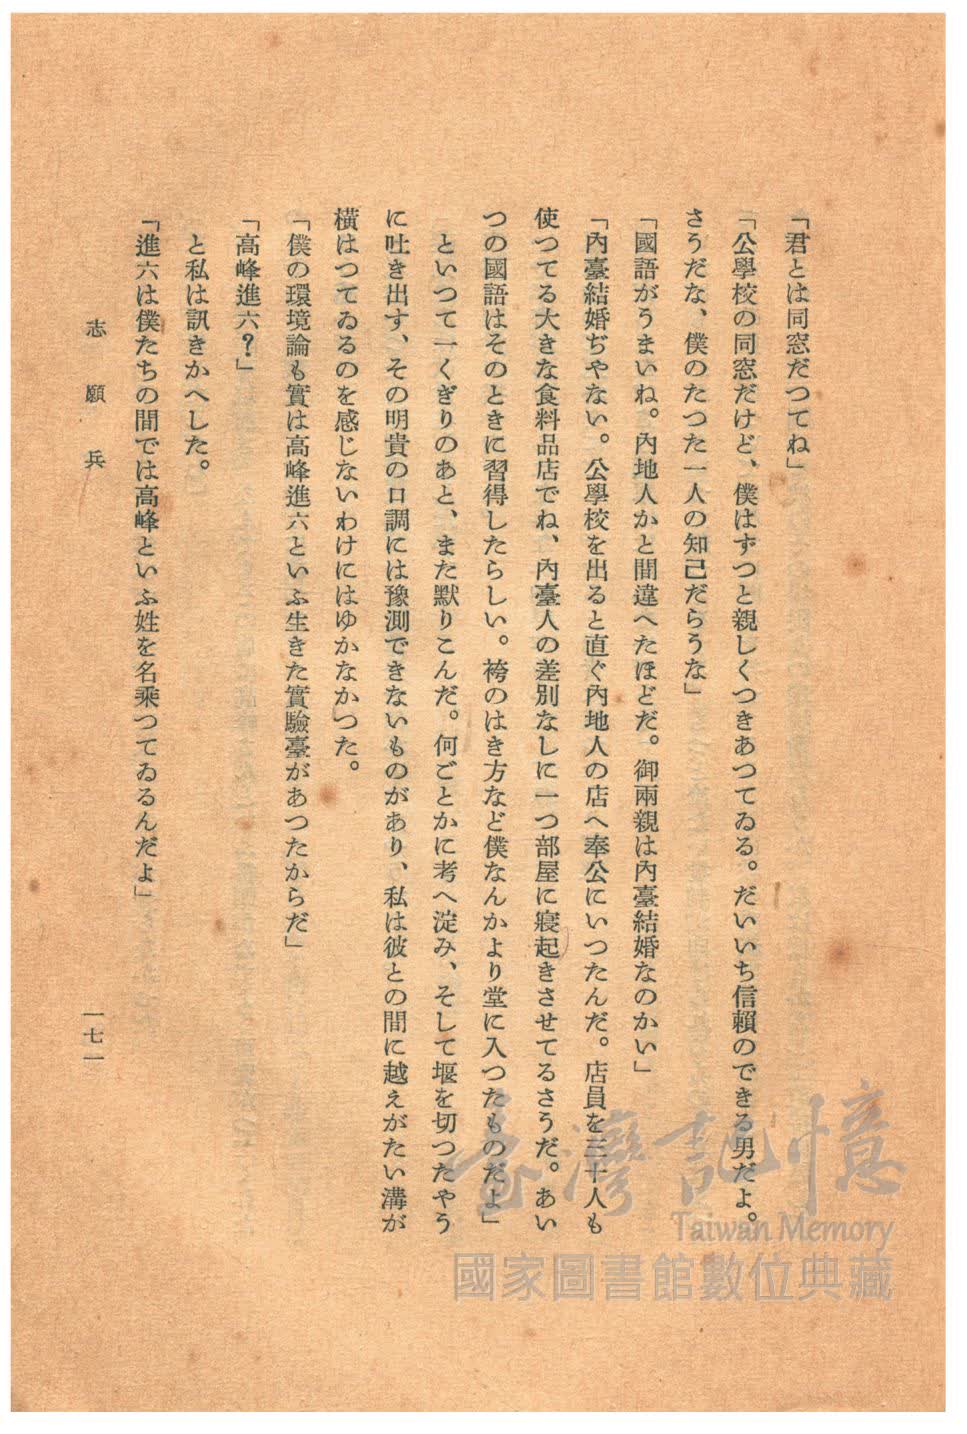 「君とは同窓だつてね」
「公學校の同窓だけど、僕はずつと親しくつきあつてゐる。だいいち信賴のできる男だよ。
さうだな、僕のたつた一人の知己だらうな」
「國語がうまいね。內地人かと間違へたほどだ。御兩親は內臺結婚なのかい」
「內臺結婚ぢやない。公學校を出ると直ぐ內地人の店へ奉公にいつたんだ。店員を三十人も
使つてる大きな食料品店でね、內臺人の差別なしに一つ部屋に寢起きさせてるさうだ。あい
つの國語はそのときに習得したらしい。袴のはき方など僕なんかより堂に入つたものだよ」
といつて一くぎりのあと、また默りこんだ。何ごとかに考へ淀み、そして堰を切つたやう
に吐き出す、その明貴の口調には豫測できないものがあり、私は彼との間に越えがたい溝が
橫はつてゐるのを感じないわけにはゆかなかつた。
「僕の環境論も實は高峰進六といふ生きた實驗臺があつたからだ」
「高峰進六?」
と私は訊きかへした。
「進六は僕たちの間では高峰といふ姓を名乘つてゐるんだよ」
志願兵
一七一
臺灣記憶
Taiwan Memory
國家圖書館數位典藏